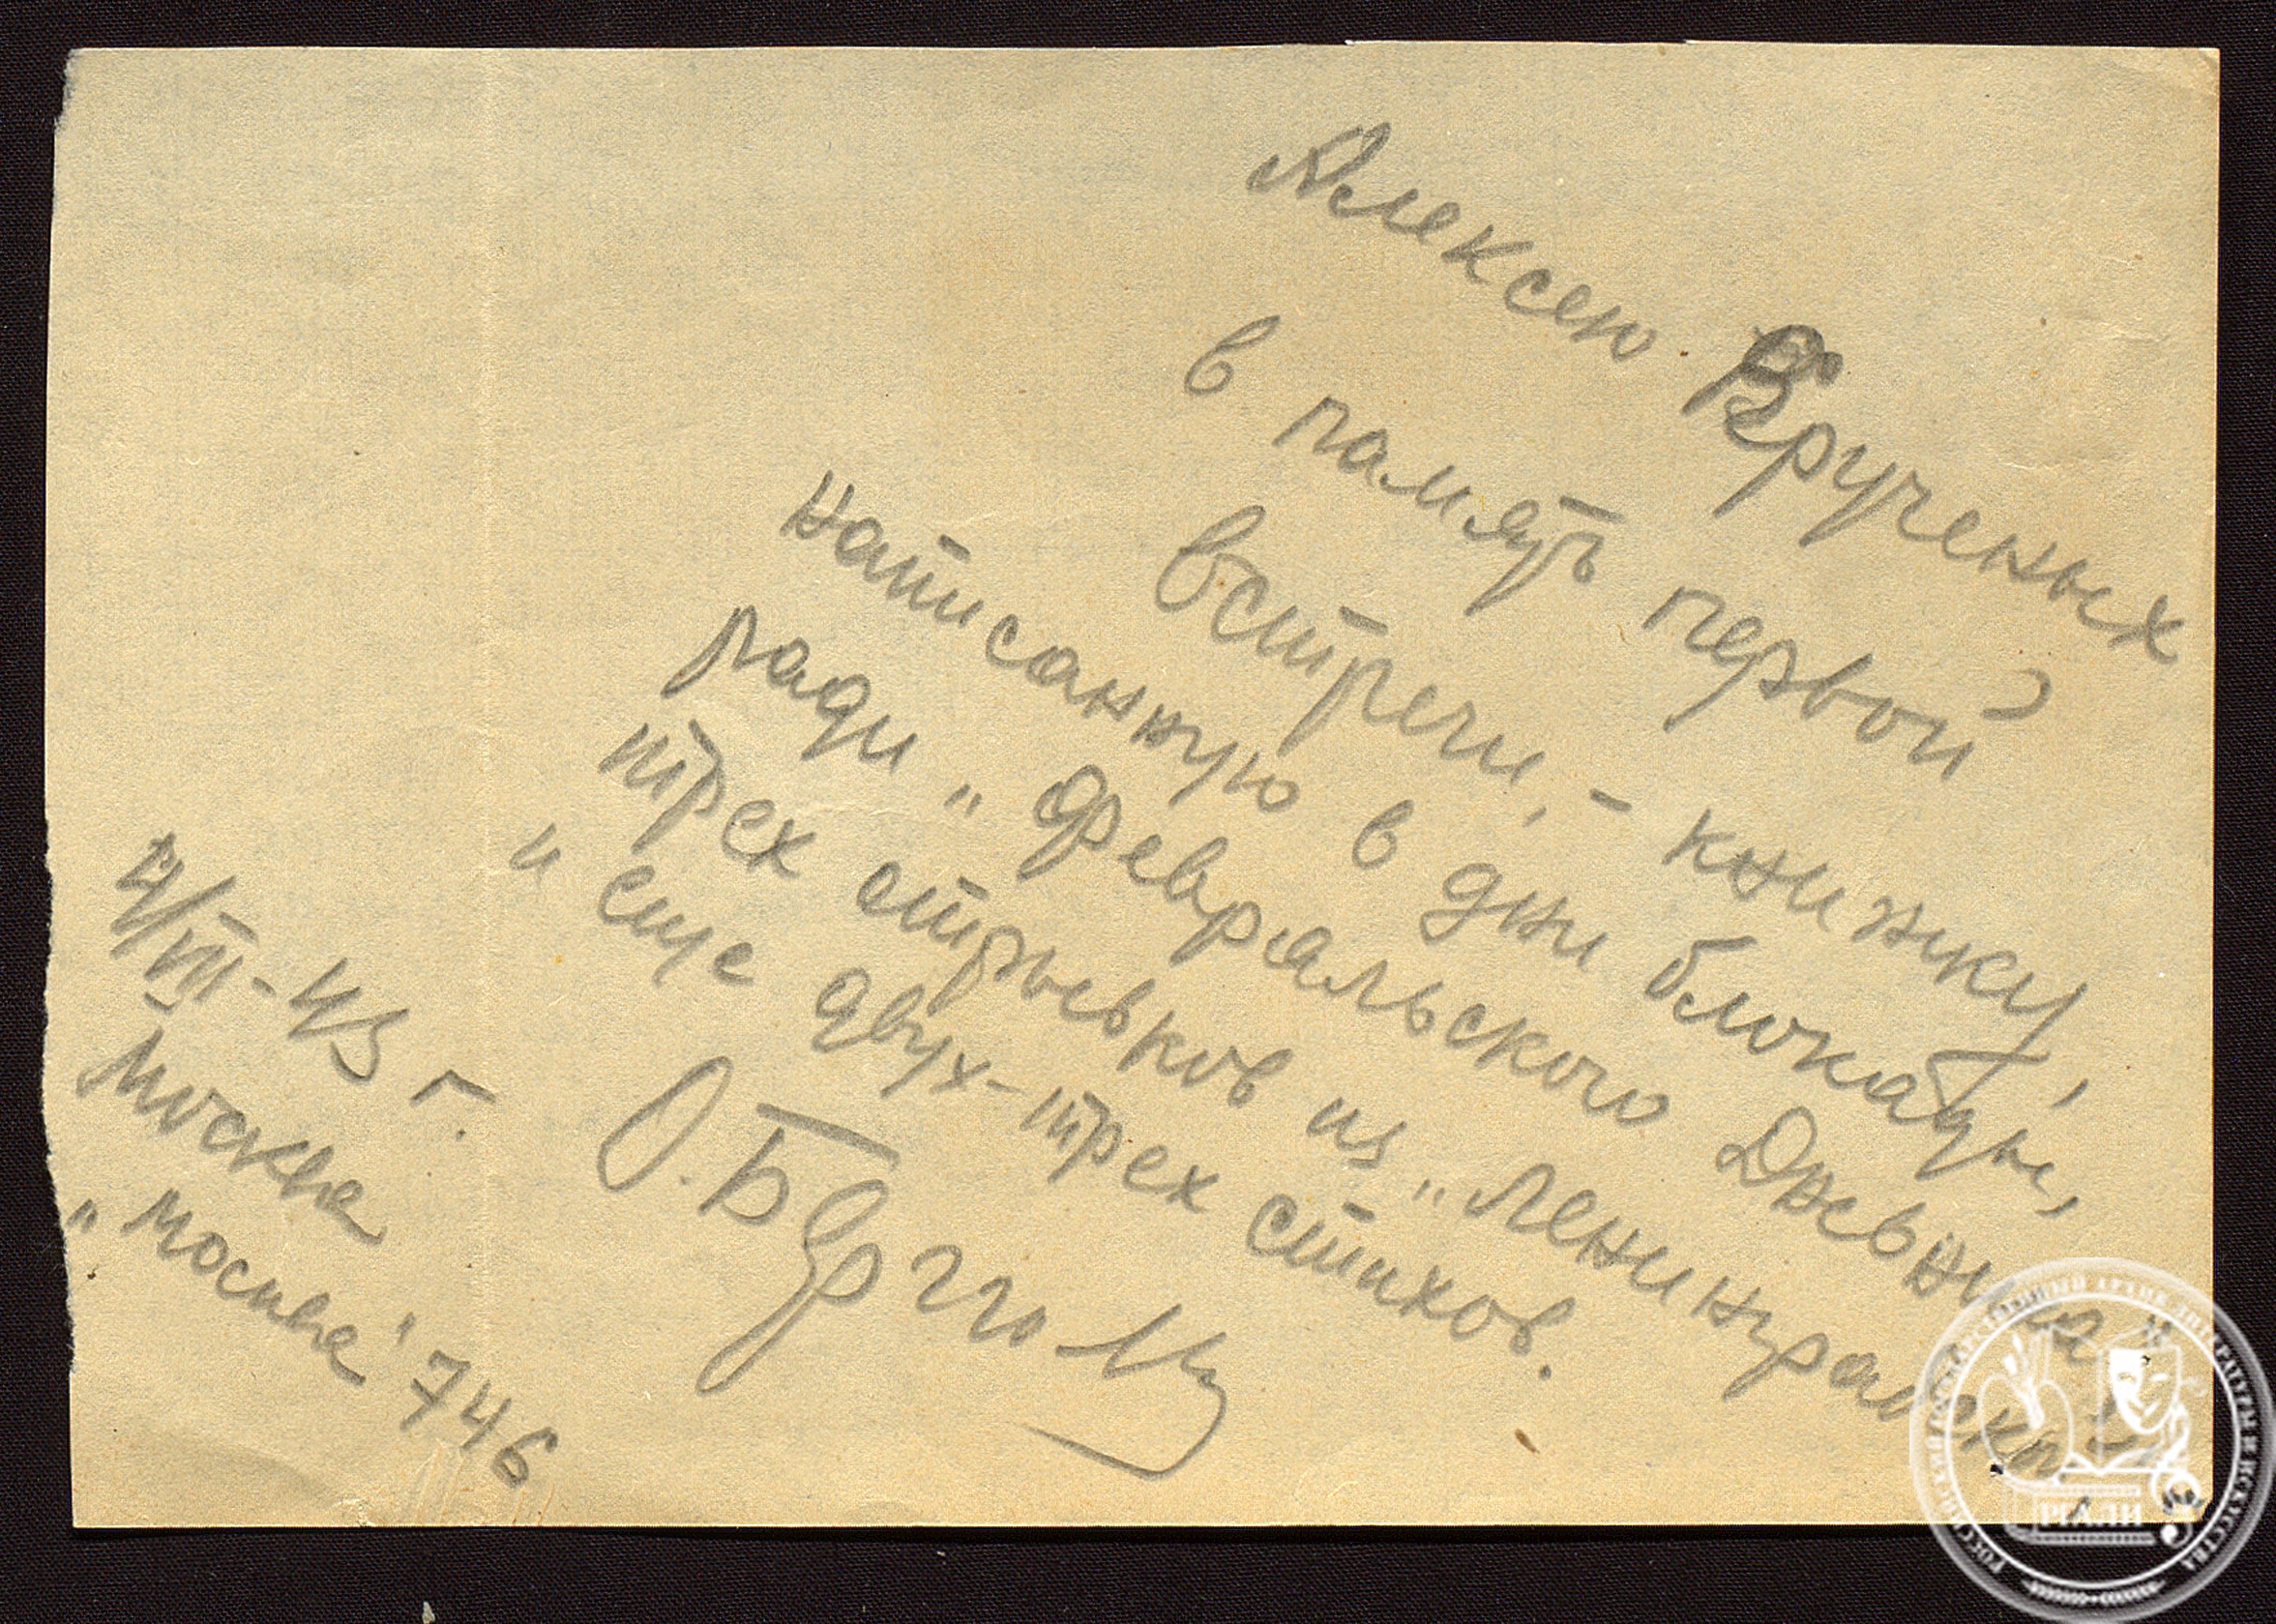 Алексею Крученых
в память первой
встречи, – книжку,
написанную в дни блокады,
ради „Февральского Дневника"
трех отрывков из „Ленинградской
и еще двух-трех стихов.
О. Берггольц
4/VIII-43 г.
Москва
„Москва" 746
РГАЛИ